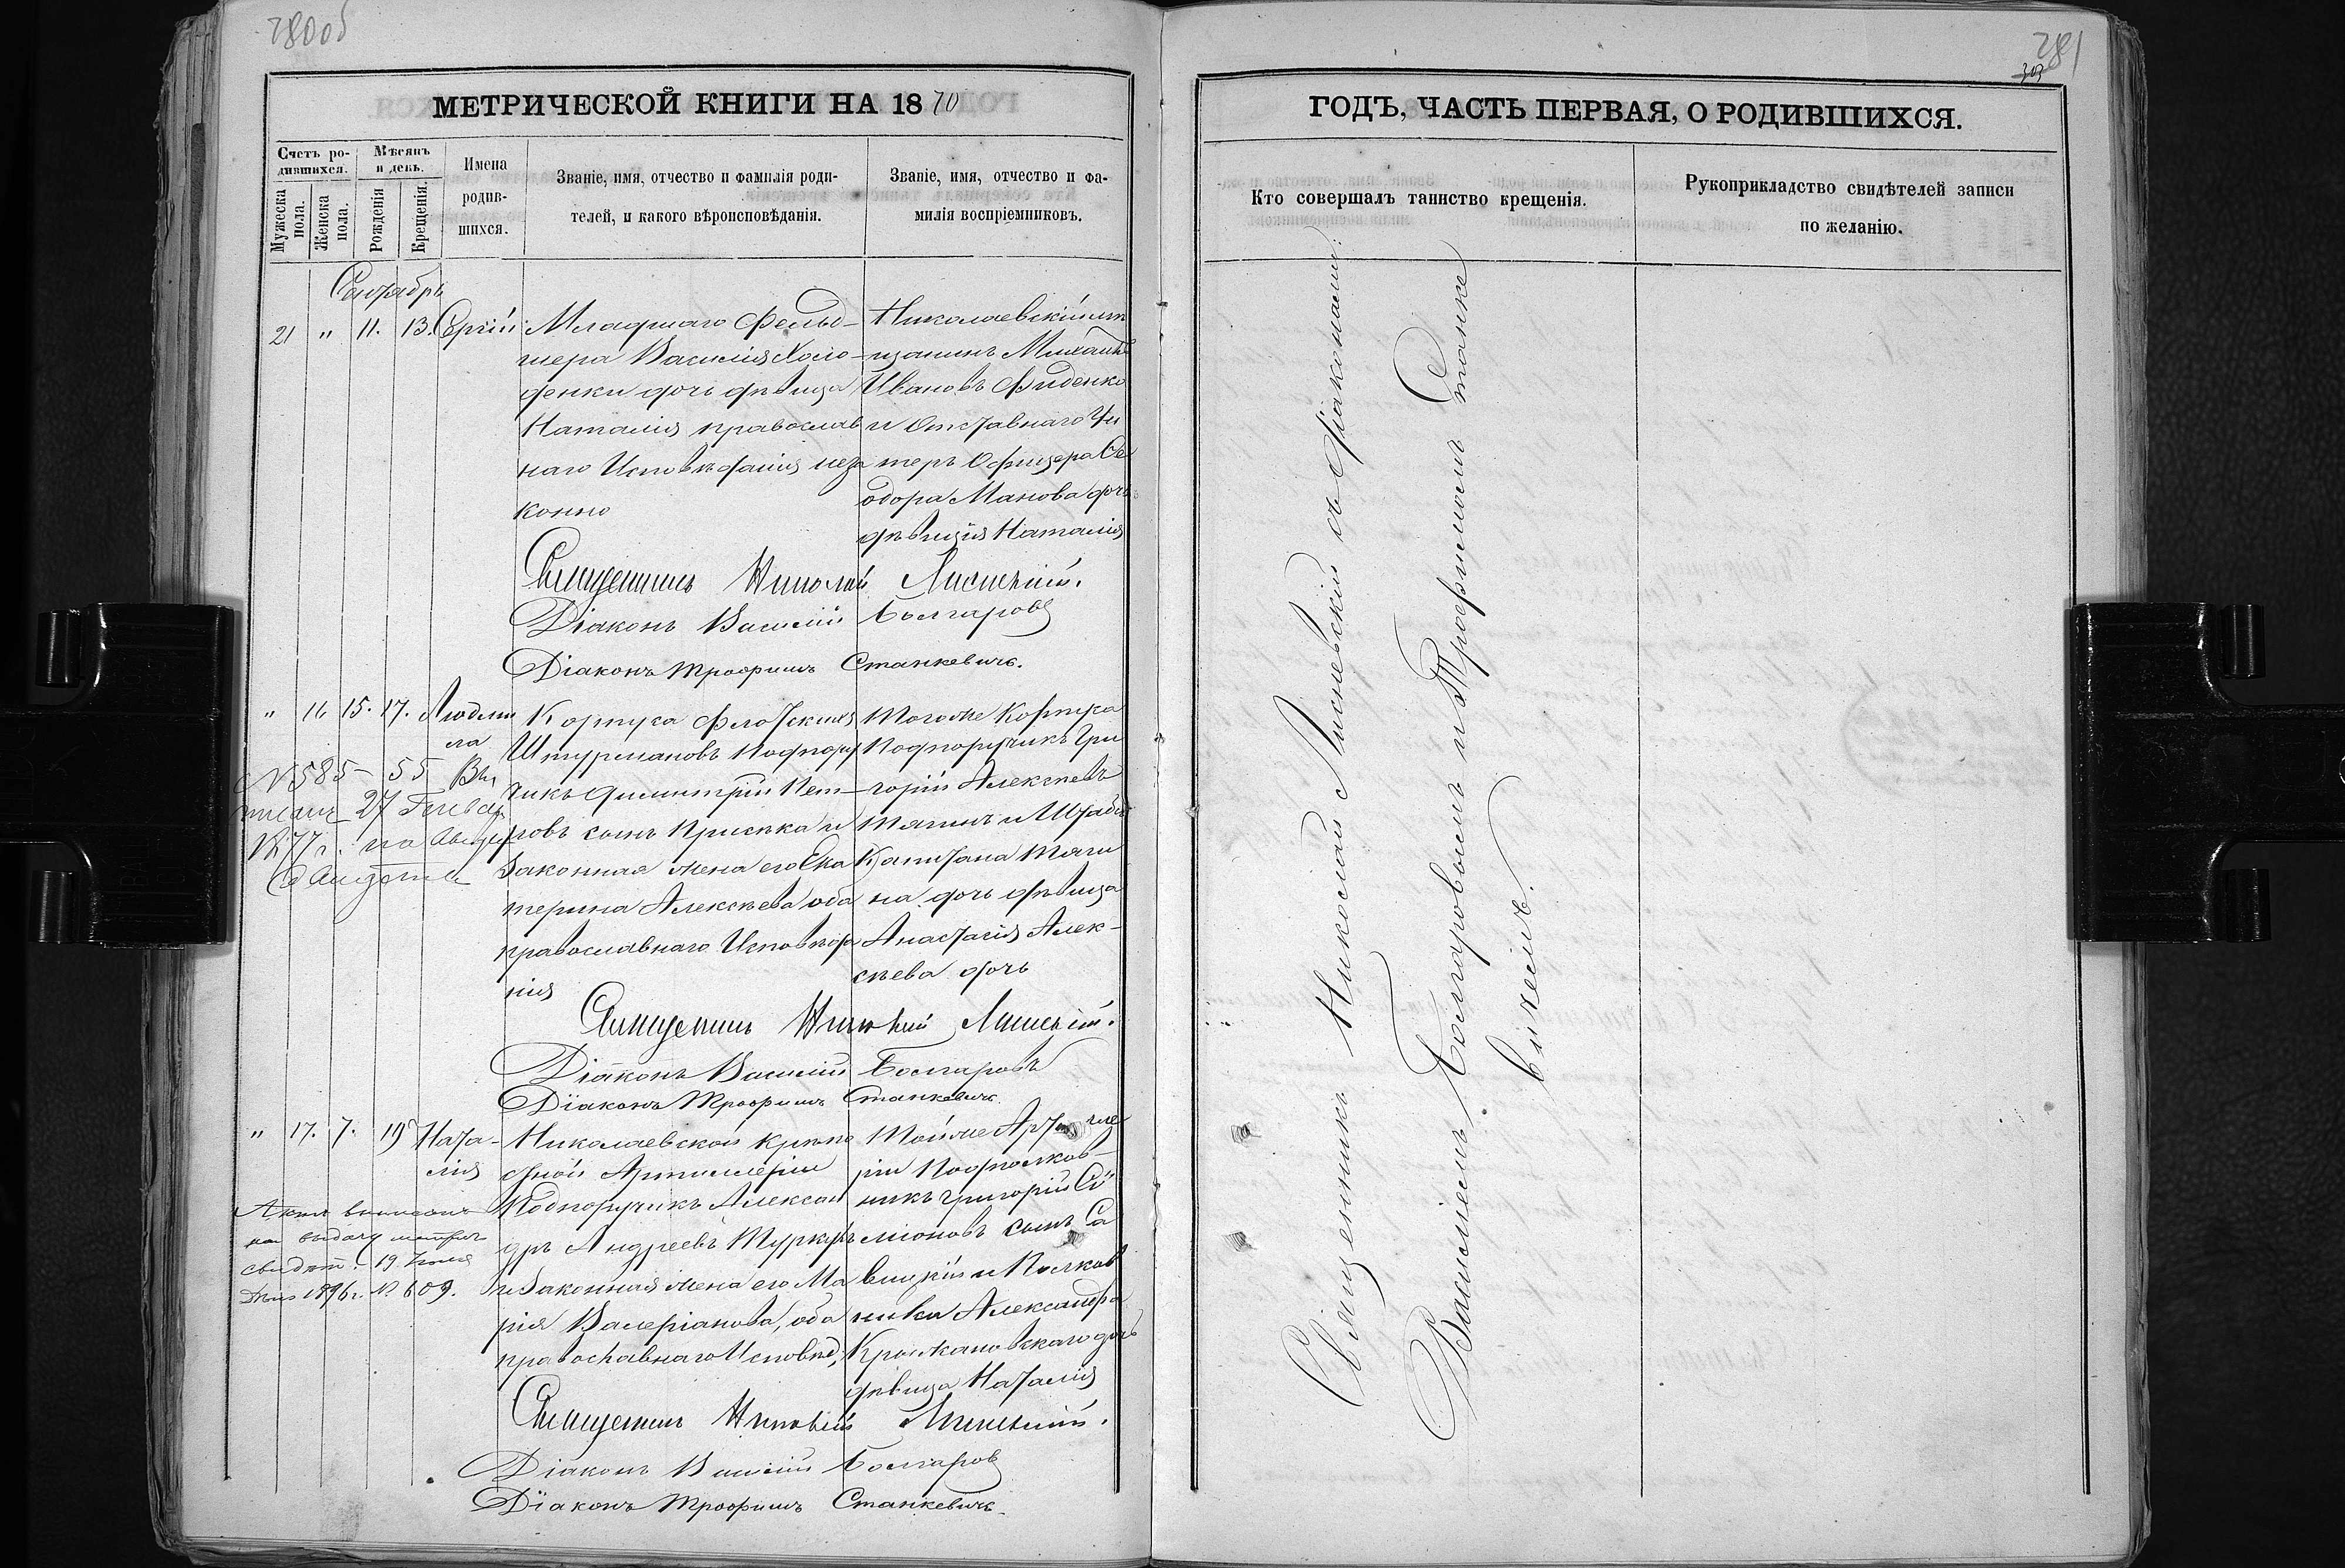 280об
МЕТРИЧЕСКОЙ КНИГИ НА 1870
Счетъ ро-
дившихся.
Мѣсяцъ
и день.
Мужеска
пола.
Женска
пола.
Рожденія
Крещенія.
Имена
родив-
шихся.
Званіе, имя, отчество и фамилія роди-
телей, и какого вѣроисповѣданія.
Званіе, имя, отчество и фа-
милія воспріемниковъ.
Сентябрь
21 " 11. 13. Сергій
Младшаго Фельд-
шера Василія Холо-
денки дочь дѣвица
Наталія православ
наго Исповѣданія неза
конно
Николаевскій мѣ
щанинъ Михаилъ
Ивановъ Фиденко
и Отставнаго Ун
теръ Офицера Ѳе
одора Манова дочь
дѣвица Наталія
Священникъ Николай Лисневскій.
Діаконъ Василій Болгаровъ
Діаконъ Трофимъ Станкевичъ.
" 16 15. 17. Людми
ла
Корпуса Флотскихъ
Штурмановъ Подпору
чикъ Димитрій Пет-
ровъ сынъ и
Законная жена его Ека
терина Алексѣева оба
православнаго Исповѣда
нія
Того же Корпуса
Подпоручикъ Гри
горій Алексѣевъ
Тягинъ и Штабсъ
Капитана Тяги
на дочь дѣвица
Анастасія Алек-
сѣева дочь
№ 585 - 55 Вы
писанъ 27 Генваря
1877 г. на
Священникъ Николай Лисневскій.
Діаконъ Василій Болгаровъ
Діаконъ Трофимъ Станкевичъ.
" 17. 7. 19 Ната-
лія
Николаевской крѣпо
стной Артиллеріи
Подпоручикъ Алексан
дръ Андреевъ
и Законная жена его Ма
рія Валеріанова, оба
православнаго Исповѣд,
Той же Артилле
ріи Подполков-
никъ Григорій Си
міоновъ сынъ Са
вицкій и Полков
ника Александра
дочь
дѣвица Наталія
Актъ выписанъ
на выдачу метрич
свидѣт. 19 Іюня
дня 1896 г. № 609.
Священникъ Николай Лисневскій.
Діаконъ Василій Болгаровъ
Діаконъ Трофимъ Станкевичъ.
281
ГОДЪ, ЧАСТЬ ПЕРВАЯ, О РОДИВШИХСЯ.
Кто совершалъ таинство крещенія.
Рукоприкладство свидѣтелей записи
по желанію.
Священникъ Николай Лисневскій съ діаконами:
Василіемъ Болгаровымъ и Трофимомъ Станке
вичемъ.